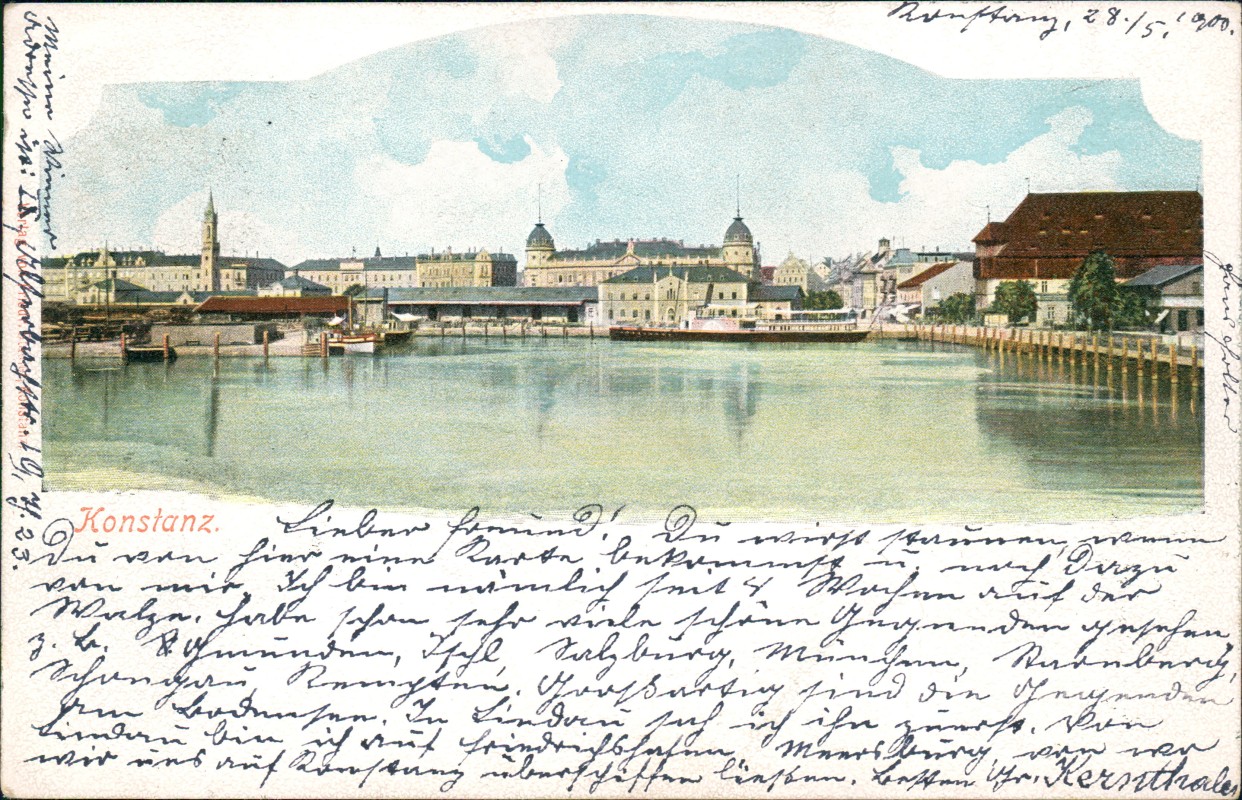 Konstanz, 28./5. 1900.
Konstanz.
Lieber Freund! Du wirst staunen, wenn
Du von hier eine Karte bekommst u. noch Dazu
von mir. Ich bin nämlich seit 4 Wochen auf der
Walze. Habe schon sehr viele schöne Gegenden gesehen,
z. B. Gmünden, Ischl, Salzburg, München, Starnberg,
Schongau, Kempten. Großartig sind die Gegenden
am Bodensee. In Lindau sah ich ihn zuerst. Von
Lindau bin ich auf Friedrichshafen, Meersburg, von wo
wir uns auf Konstanz überschiffen ließen. Besten Gr. Kernthaler
Meine Wiener
Adresse ist: IX,
19,
23.